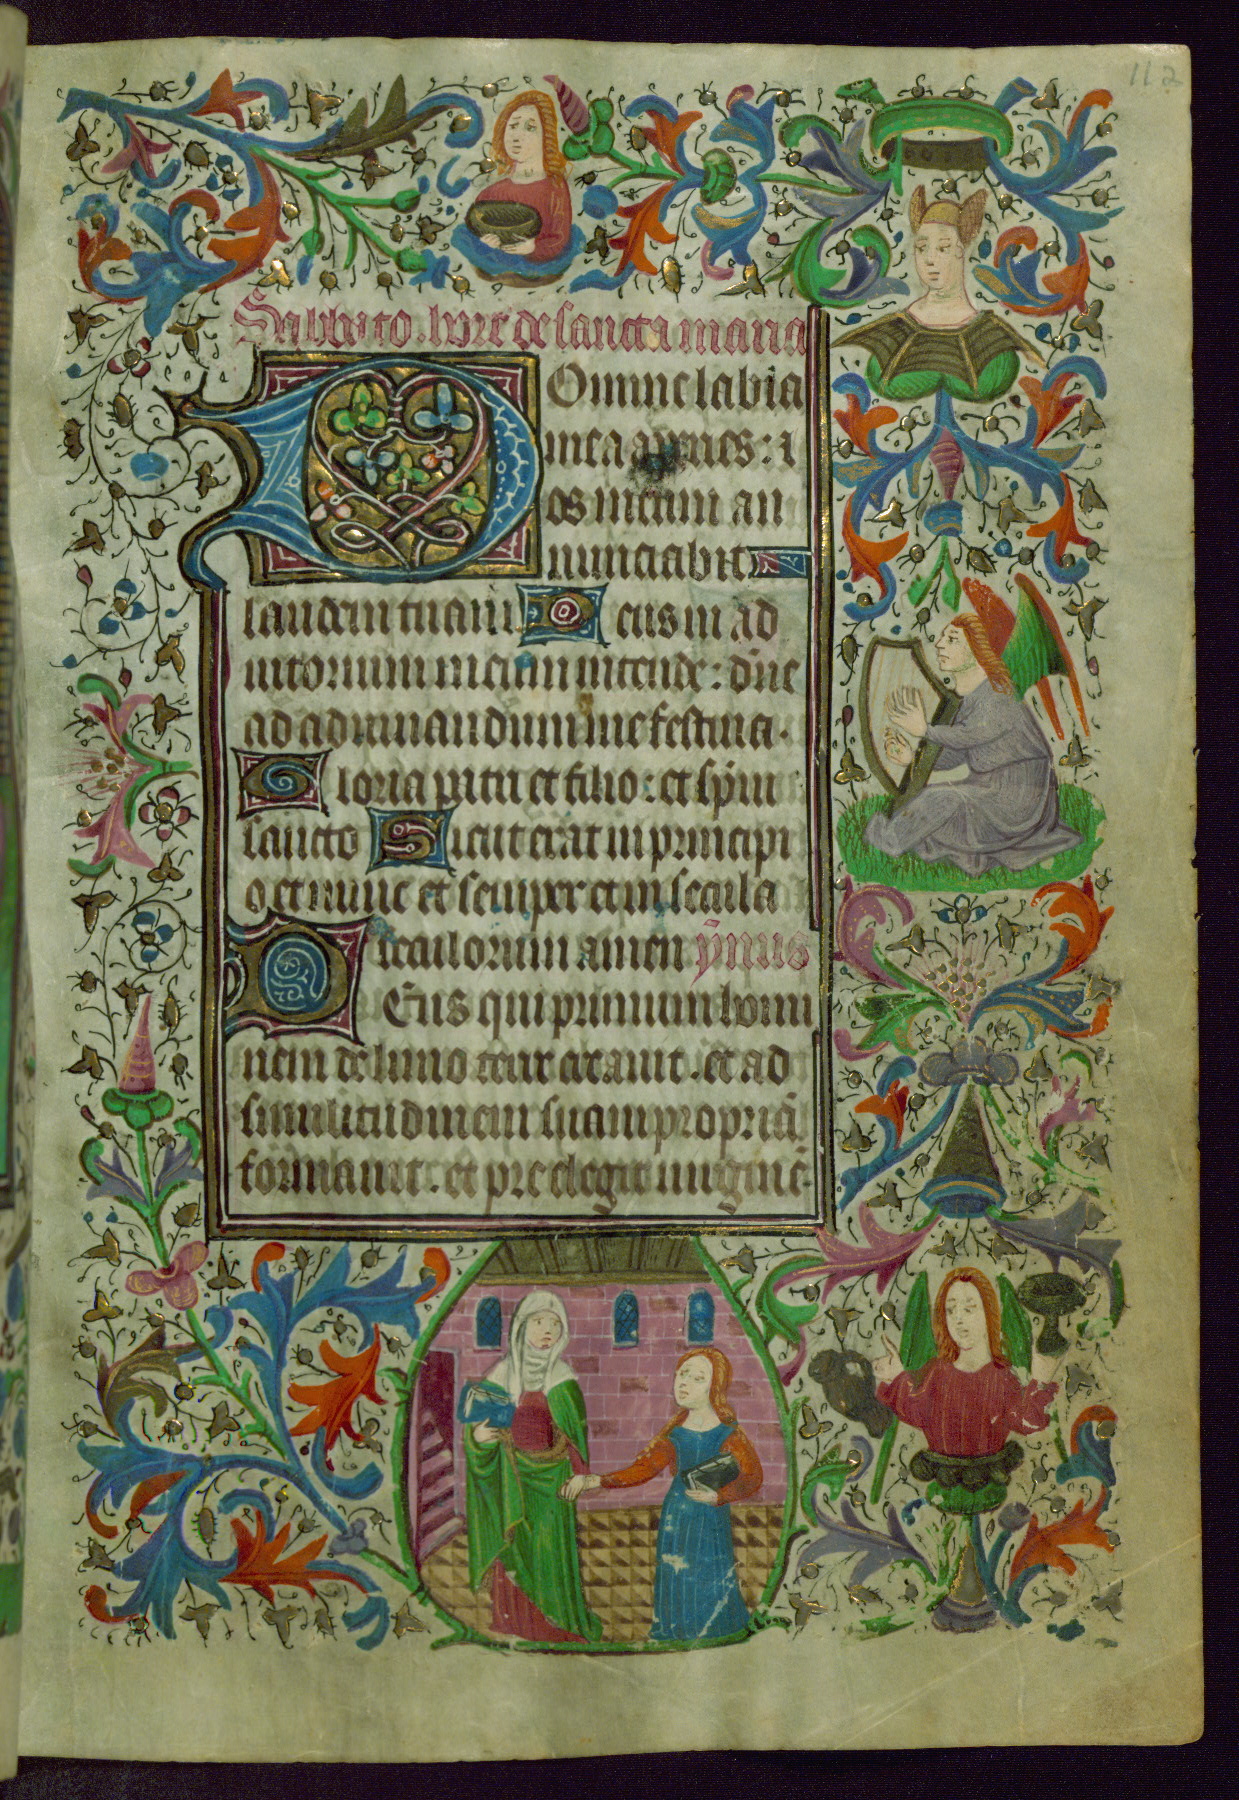 112
Sabbato hore de sancta maria
Domine labia
mea aperies: ⁊
os meum an
nunciabit
laudem tuam Deus in ad
iutorium meum intende: dn̄e
ad adiuuandum me festina.
Gloria patri et filio: et spūi
sancto Sicut erat in principi
o et nunc et semper et in secula
seculorum amen ẏmnus
Deus qui primum homi
nem de limo terre creauit. et ad
similitudinem suam propriā
formauit. et preelegit uirginē.